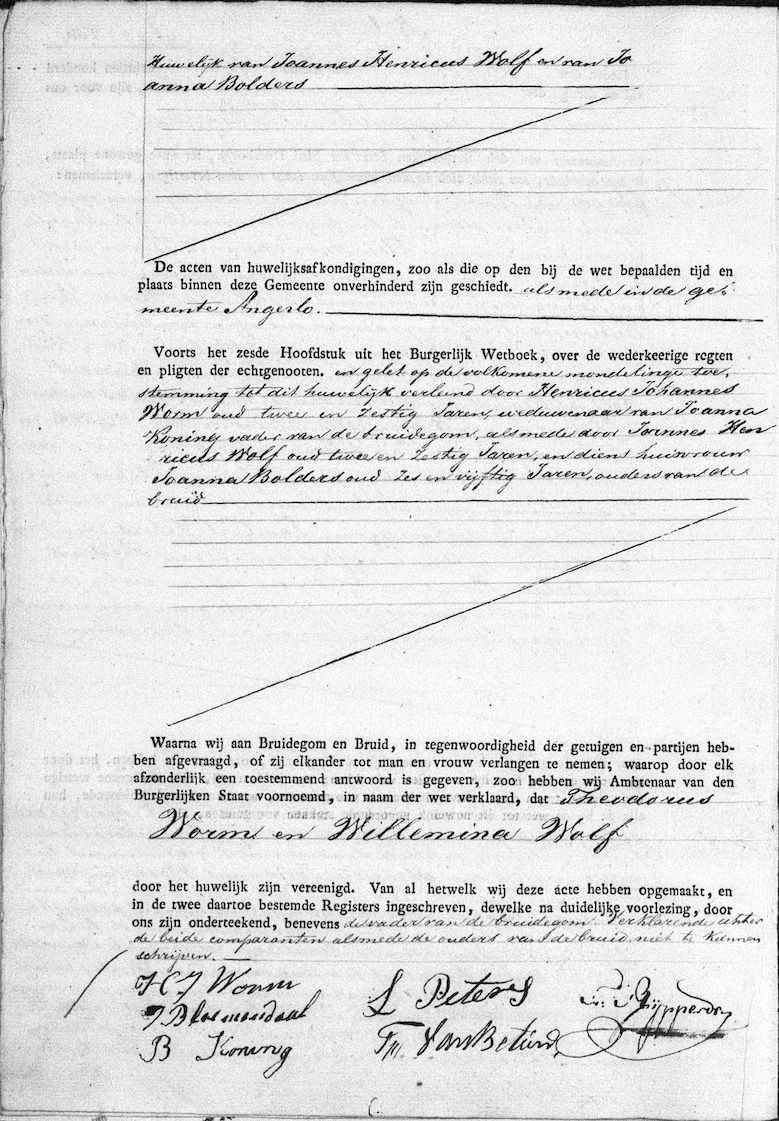 Huwelijk van Joannes Henricus Wolf en van Jo
anna Bolders
De acten van huwelijksafkondigingen, zoo als die op den bij de wet bepaalden tijd en
plaats binnen deze Gemeente onverhinderd zijn geschiedt. alsmede in de ge-
meente Angerlo.
Voorts het zesde Hoofdstuk uit het Burgerlijk Wetboek, over de wederkeerige regten
en pligten der echtgenooten. en gelet op de volkomene mondelinge toe,
stemming tot dit huwelijk verleend door Henricus Johannes
Worm oud twee en zestig Jaren, weduwenaar van Joanna
Koning vader van de bruidegom, alsmede door Joannes Hen
ricus Wolf oud twee en zestig Jaren, en diens huisvrouw
Joanna Bolders oud zes en vijftig Jaren, ouders van de
bruid
Waarna wij aan Bruidegom en Bruid, in tegenwoordigheid der getuigen en partijen heb-
ben afgevraagd, of zij elkander tot man en vrouw verlangen te nemen; waarop door elk
afzonderlijk een toestemmend antwoord is gegeven, zoo hebben wij Ambtenaar van den
Burgerlijken Staat voornoemd, in naam der wet verklaard, dat Theodorus
Worm en Willemina Wolf
door het huwelijk zijn vereenigd. Van al hetwelk wij deze acte hebben opgemaakt, en
in de twee daartoe bestemde Registers ingeschreven, dewelke na duidelijke voorlezing, door
ons zijn onderteekend, benevens de vader van de bruidegom. Verklarende echter
de beide comparanten alsmede de ouders van de bruid, niet te kunnen
schrijven.
H J Worm
L Peters
J Bloemendaal
B Koning